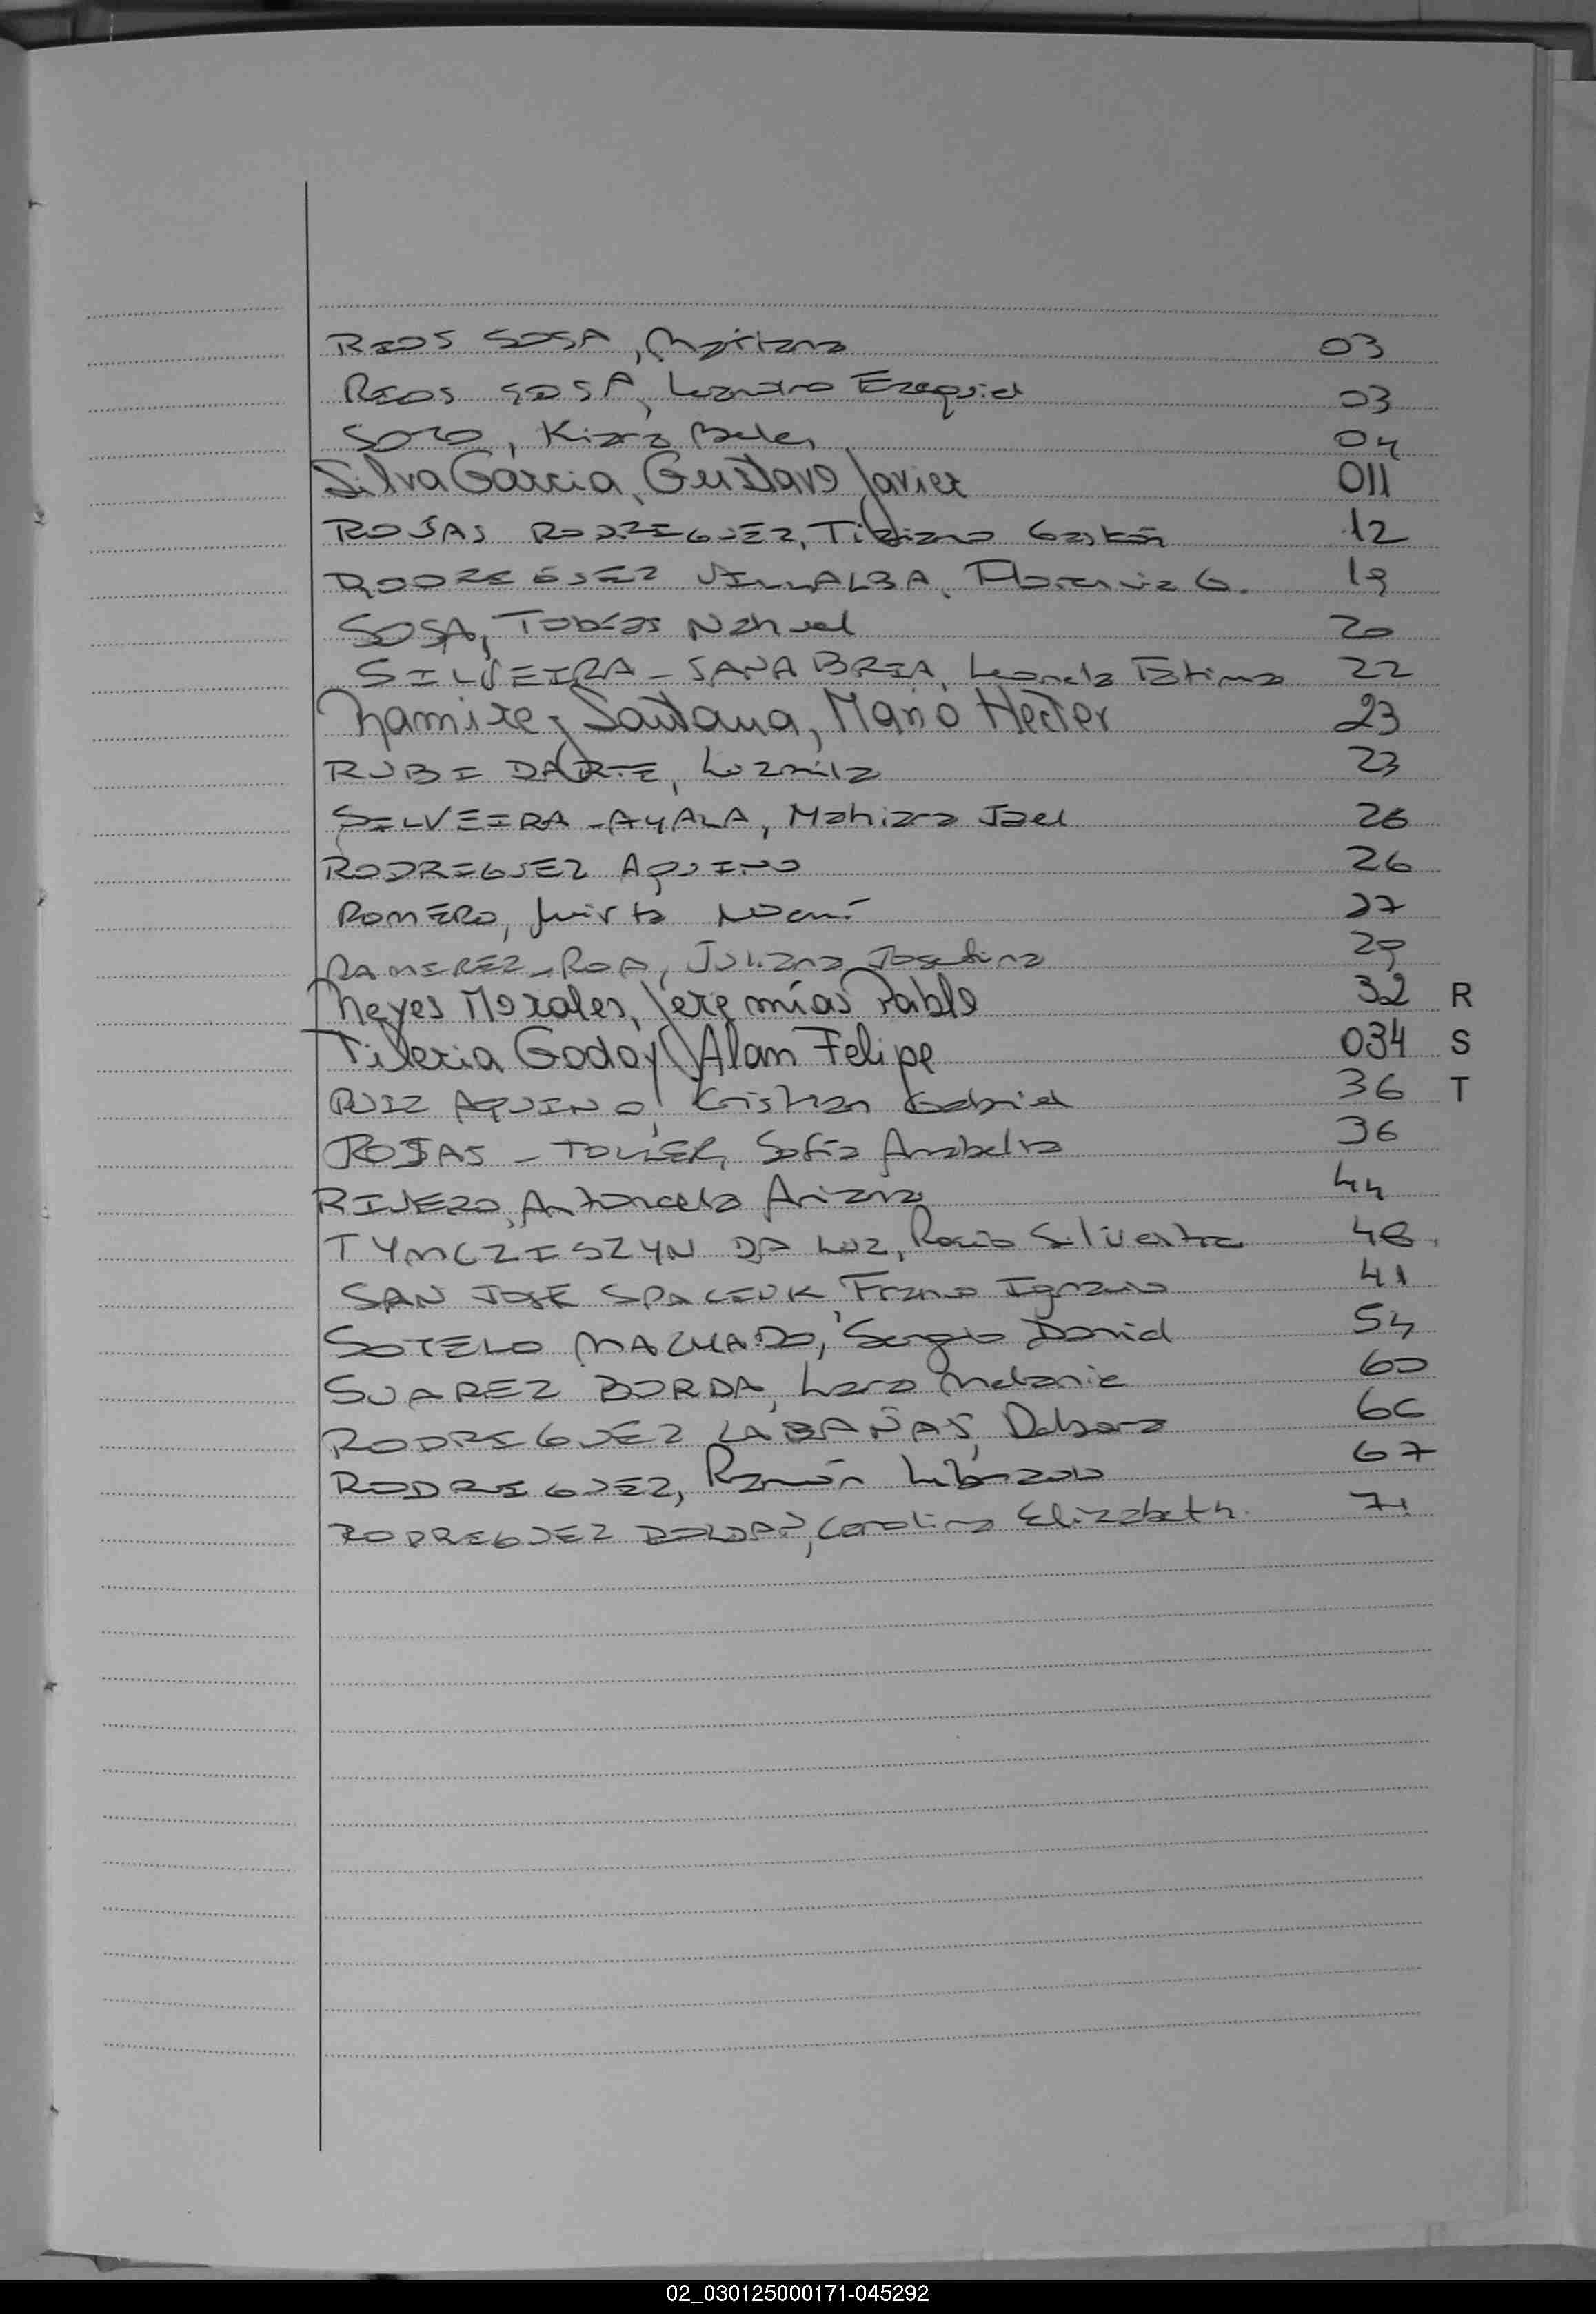 RIOS SOSA, Maitana 03
RIOS SOSA, Leandro Ezequiel 03
SOTO, Kiara Belen 04
Silva Garcia, Gustavo Javier 011
ROJAS RODRIGUEZ, Tiziano Gastón 12
RODRIGUEZ VILLALBA, Florencia G. 19
SOSA, Tobías Nahuel 20
SILVEIRA - SANABRIA, Leonela Fatima 22
Ramirez Santana, Mario Hector 23
RUBI DARTE, Luzmila 23
SILVEIRA - AYALA, Mahiara Jael 26
RODRIGUEZ AQUINO 26
ROMERO, Mirta Noemí 27
RAMIREZ - ROA, Juliana Josefina 29
Reyes Morales, Jeremías Pablo 32 R
Tileria Godoy, Alan Felipe 034 S
RUIZ AQUINO, Cristian Gabriel 36 T
ROJAS - TOLLER, Sofía Anabella 36
RIVERO, Antonella Ariana 44
TYMCZISZYN DA LUZ, Rocío Silvestra 48
SAN JOSE SPACIUK, Franco Ignacio 41
SOTELO MACHADO, Sergio David 54
SUAREZ BORDA, Lara Melanie 60
RODRIGUEZ CABAÑAS, Debora 66
RODRIGUEZ, Ramón Librado 67
RODRIGUEZ Carolina Elizabeth. 71
02_030125000171-045292